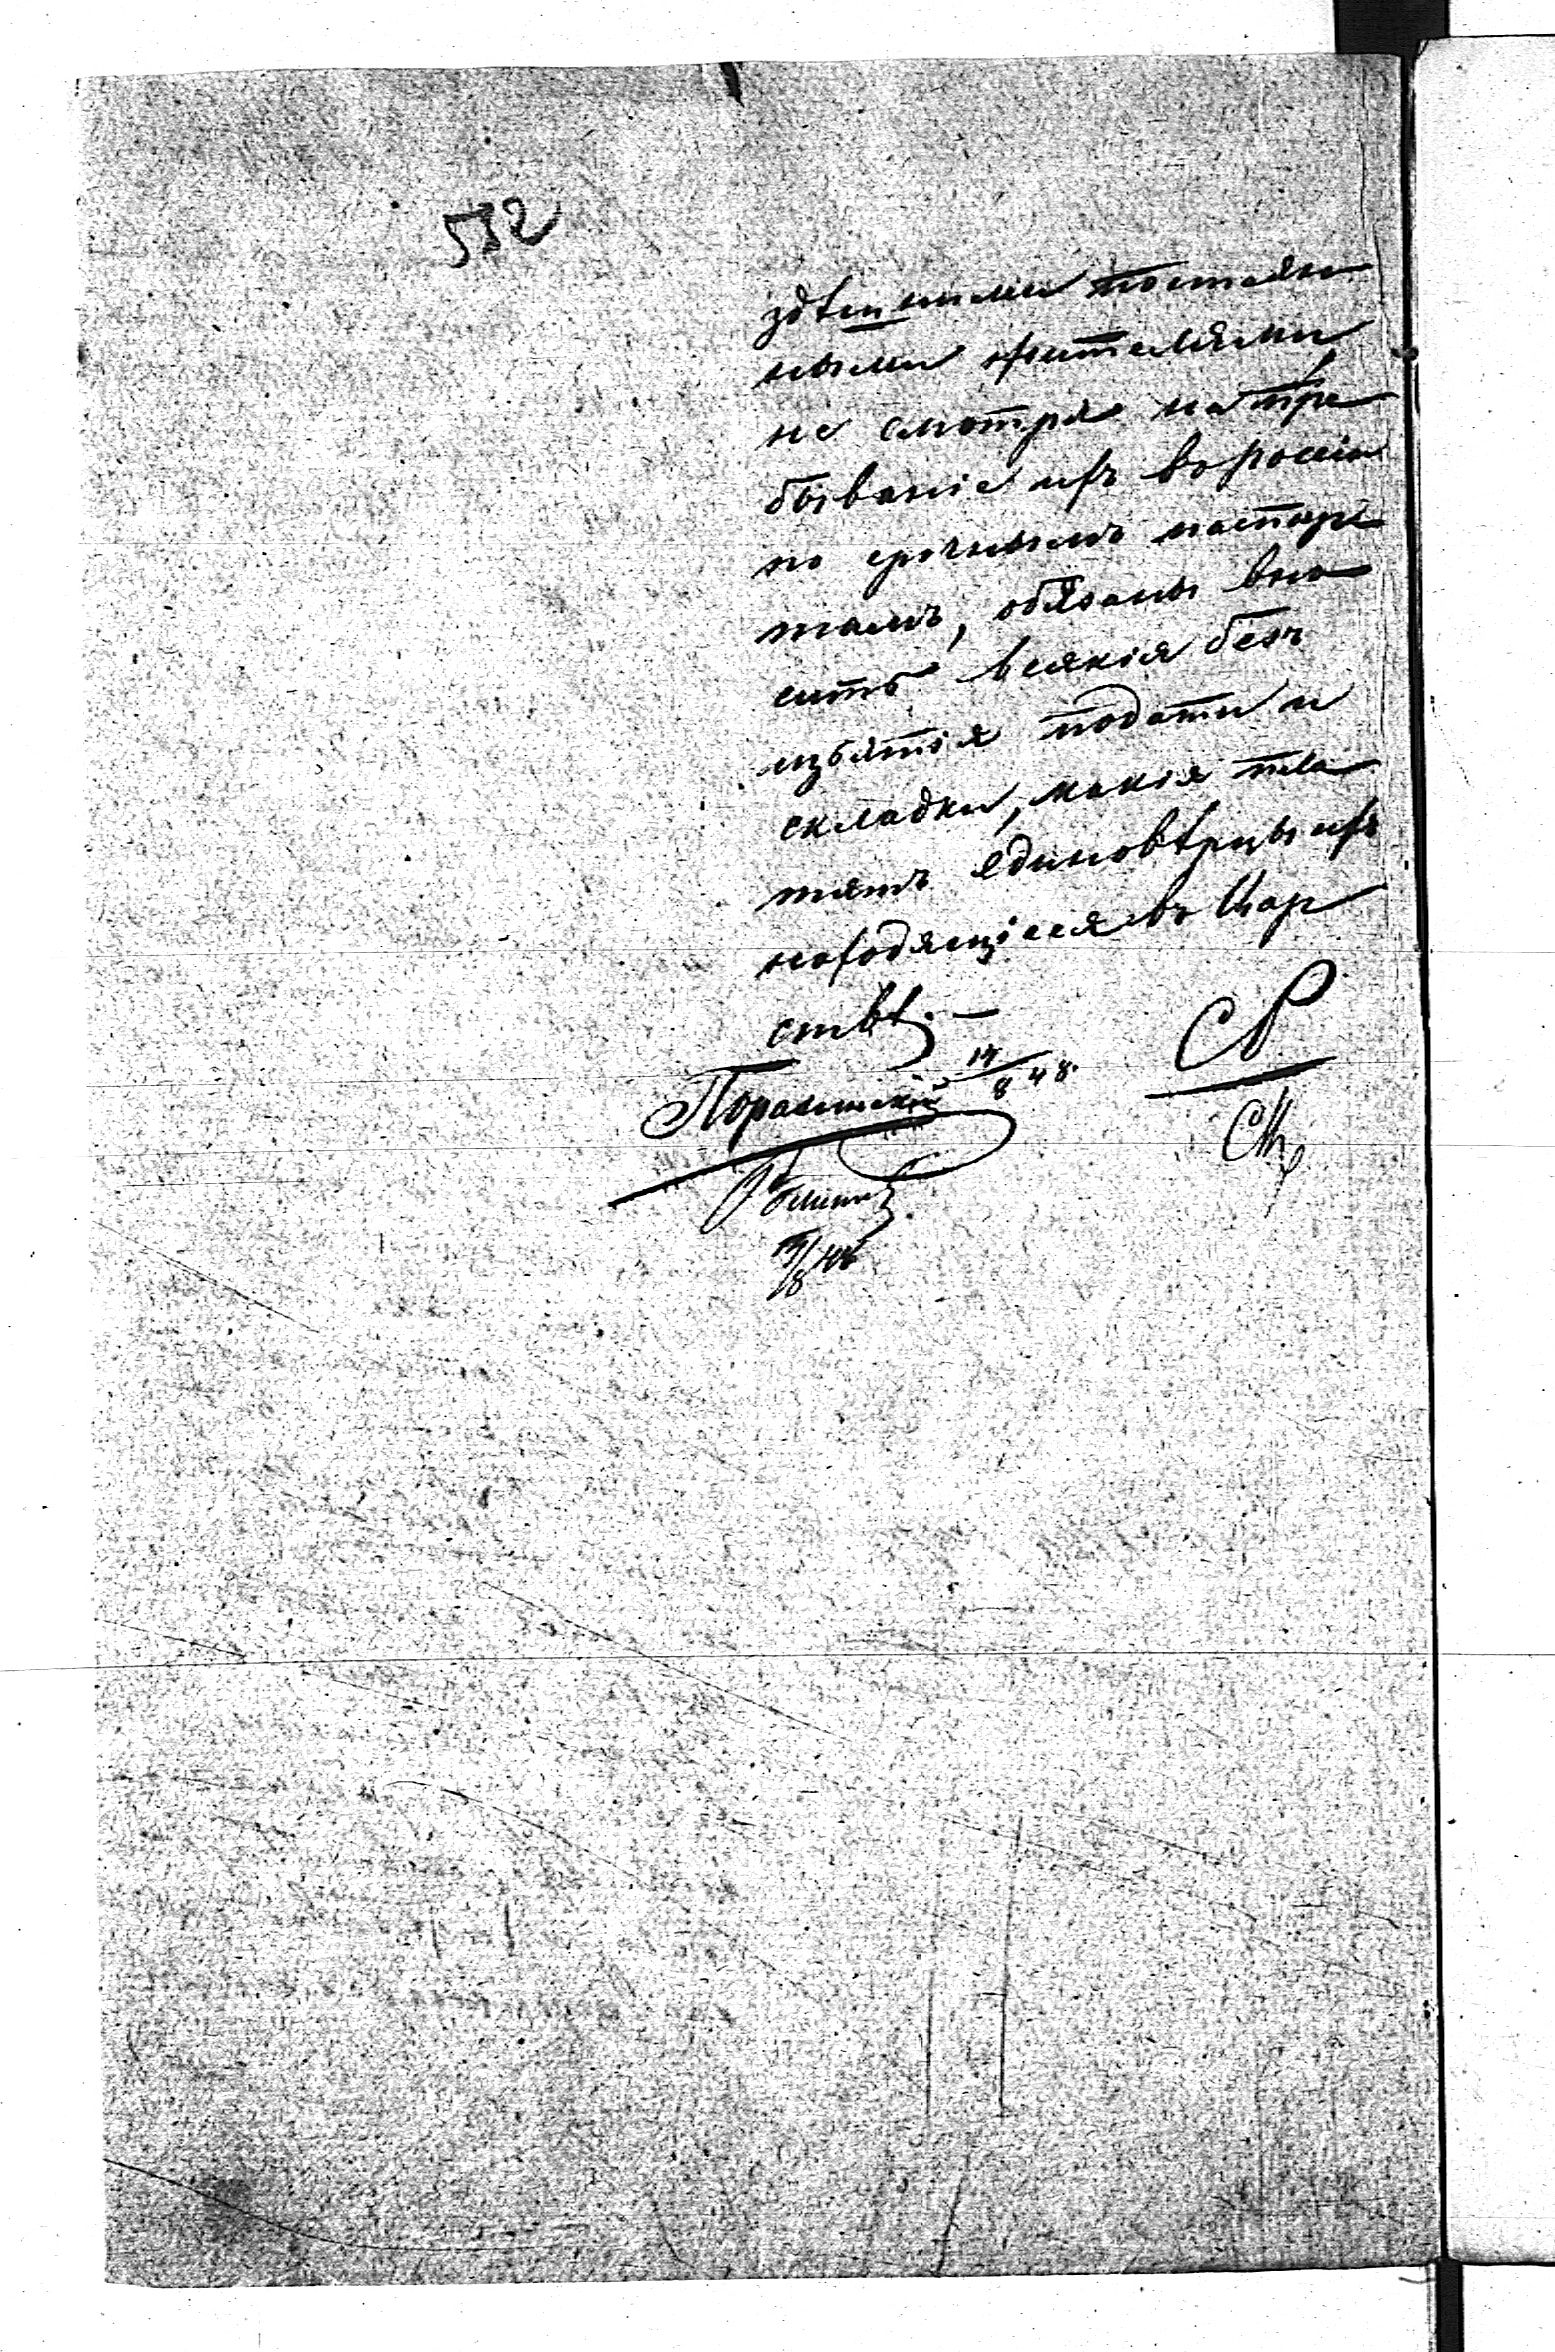 532
здѣшними постоян
ными жителями,
не смотря на пре
бываніе ихъ въ россіи
по срочнымъ паспор
тамъ, обязаны вно
сить всякія безъ
изъятія подати и
складки, какія пла
тятъ единовѣрцы ихъ
находящіеся въ Цар
ствѣ. —
14/8 48.
14/8 48